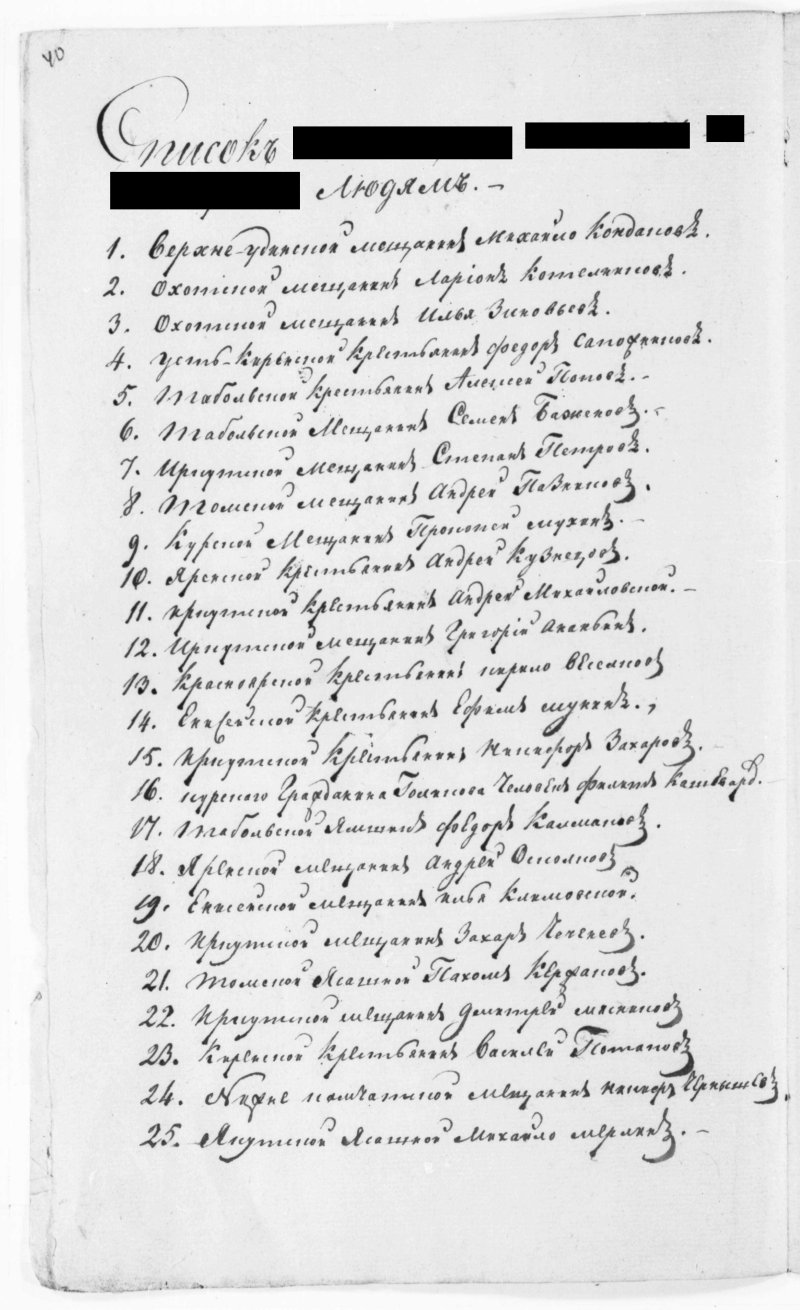 40
Списокъ
людямъ. –
1. Верхне-удинской мещанинъ Михайло Кондаковъ.
2. Охотской мещанинъ Ларіонъ Котельниковъ.
3. Охотской мещанинъ Илья Зиновьевъ.
4. усть-Киренской крестьянинъ федоръ сапожниковъ.
5. Табольской крестьянинъ Алексей Поповъ. –
6. Табольской Мещанинъ Семенъ Баженовъ. –
7. Иркутской мещанинъ Степанъ Петровъ.
8. Томской мещанинъ Андрей
9. Курской Мещанинъ Прокопей мухинъ. –
10. Яренской крестьянинъ Андрей Кузнецовъ.
11. иркутской крестьянинъ Андрей Михайловской. –
12. Иркутской мещанинъ Григорій ананьинъ.
13. Красноярской крестьянинъ кирило
14. Енисейской крестьянинъ Ефимъ
15. Иркутской крестьянинъ Никифоръ Захаровъ.
16. курского Гражданина Голикова Человекъ филипъ
17. Табольской Ямщикъ федоръ Калмаковъ.
18. Яренской мещанинъ Андрей Осколковъ
19. Енисейской мещанинъ илья Климовской.
20. Иркутской мещанинъ Захаръ Чеченевъ.
21. Томской Ясашной Пахомъ
22. Иркутской мещанинъ дмитрей
23. Киренской крестьянинъ Василей Потаповъ
24. Нижне камчатской мещанинъ никифоръ Чернышевъ.
25. Якутской Ясашной Михайло –